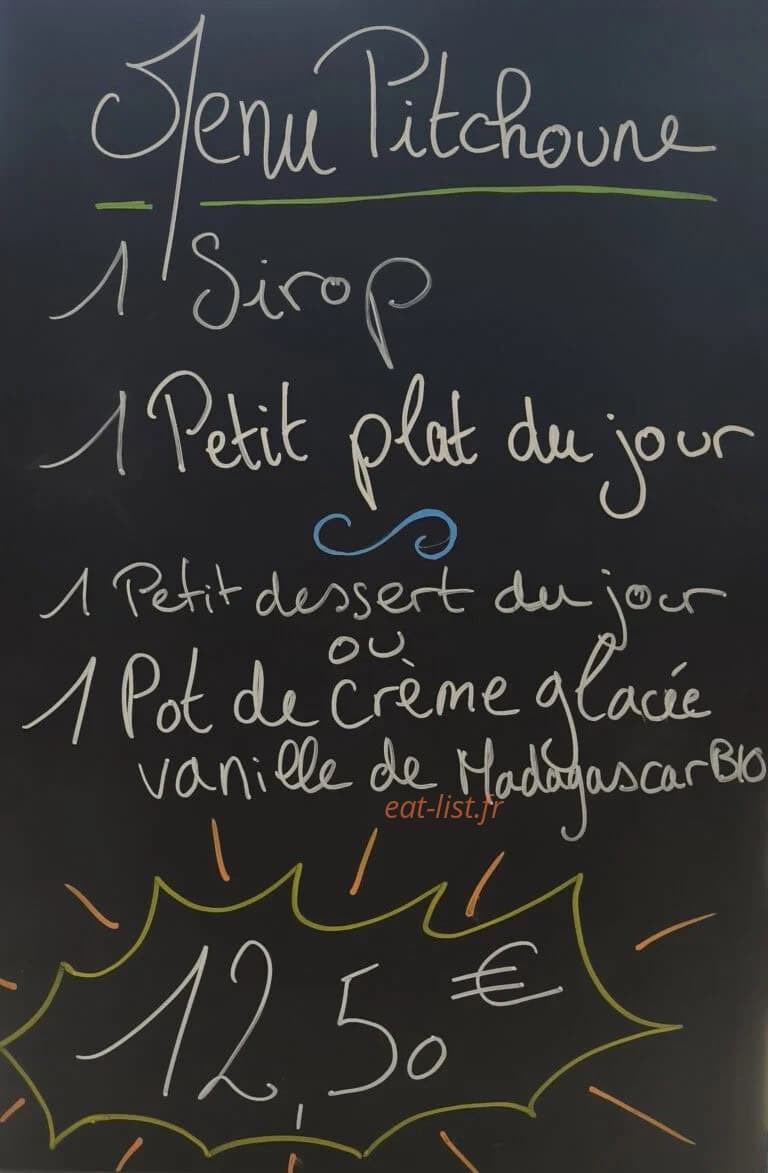 Menu Pitchoune
1 Sirop
1 Petit plat du jour
1 Petit dessert du jour
ou
1 Pot de crème glacée
vanille de Madagascar BIO
eat-list.fr
12,50 €